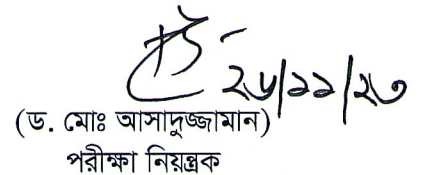 ২৬/১১/২৩
(ড. মোঃ আসাদুজ্জামান)
পরীক্ষা নিয়ন্ত্রক